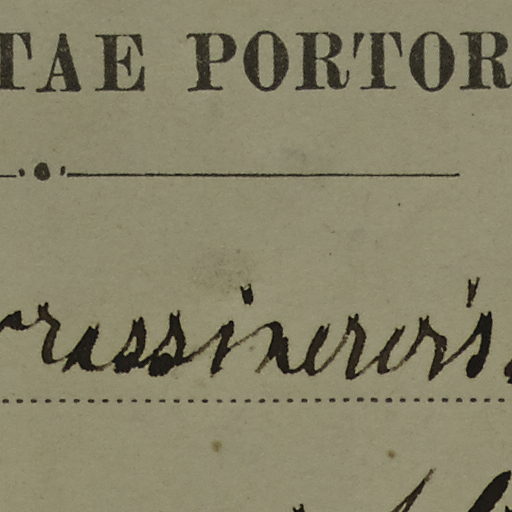 TAE PORTOR
rassinervi's